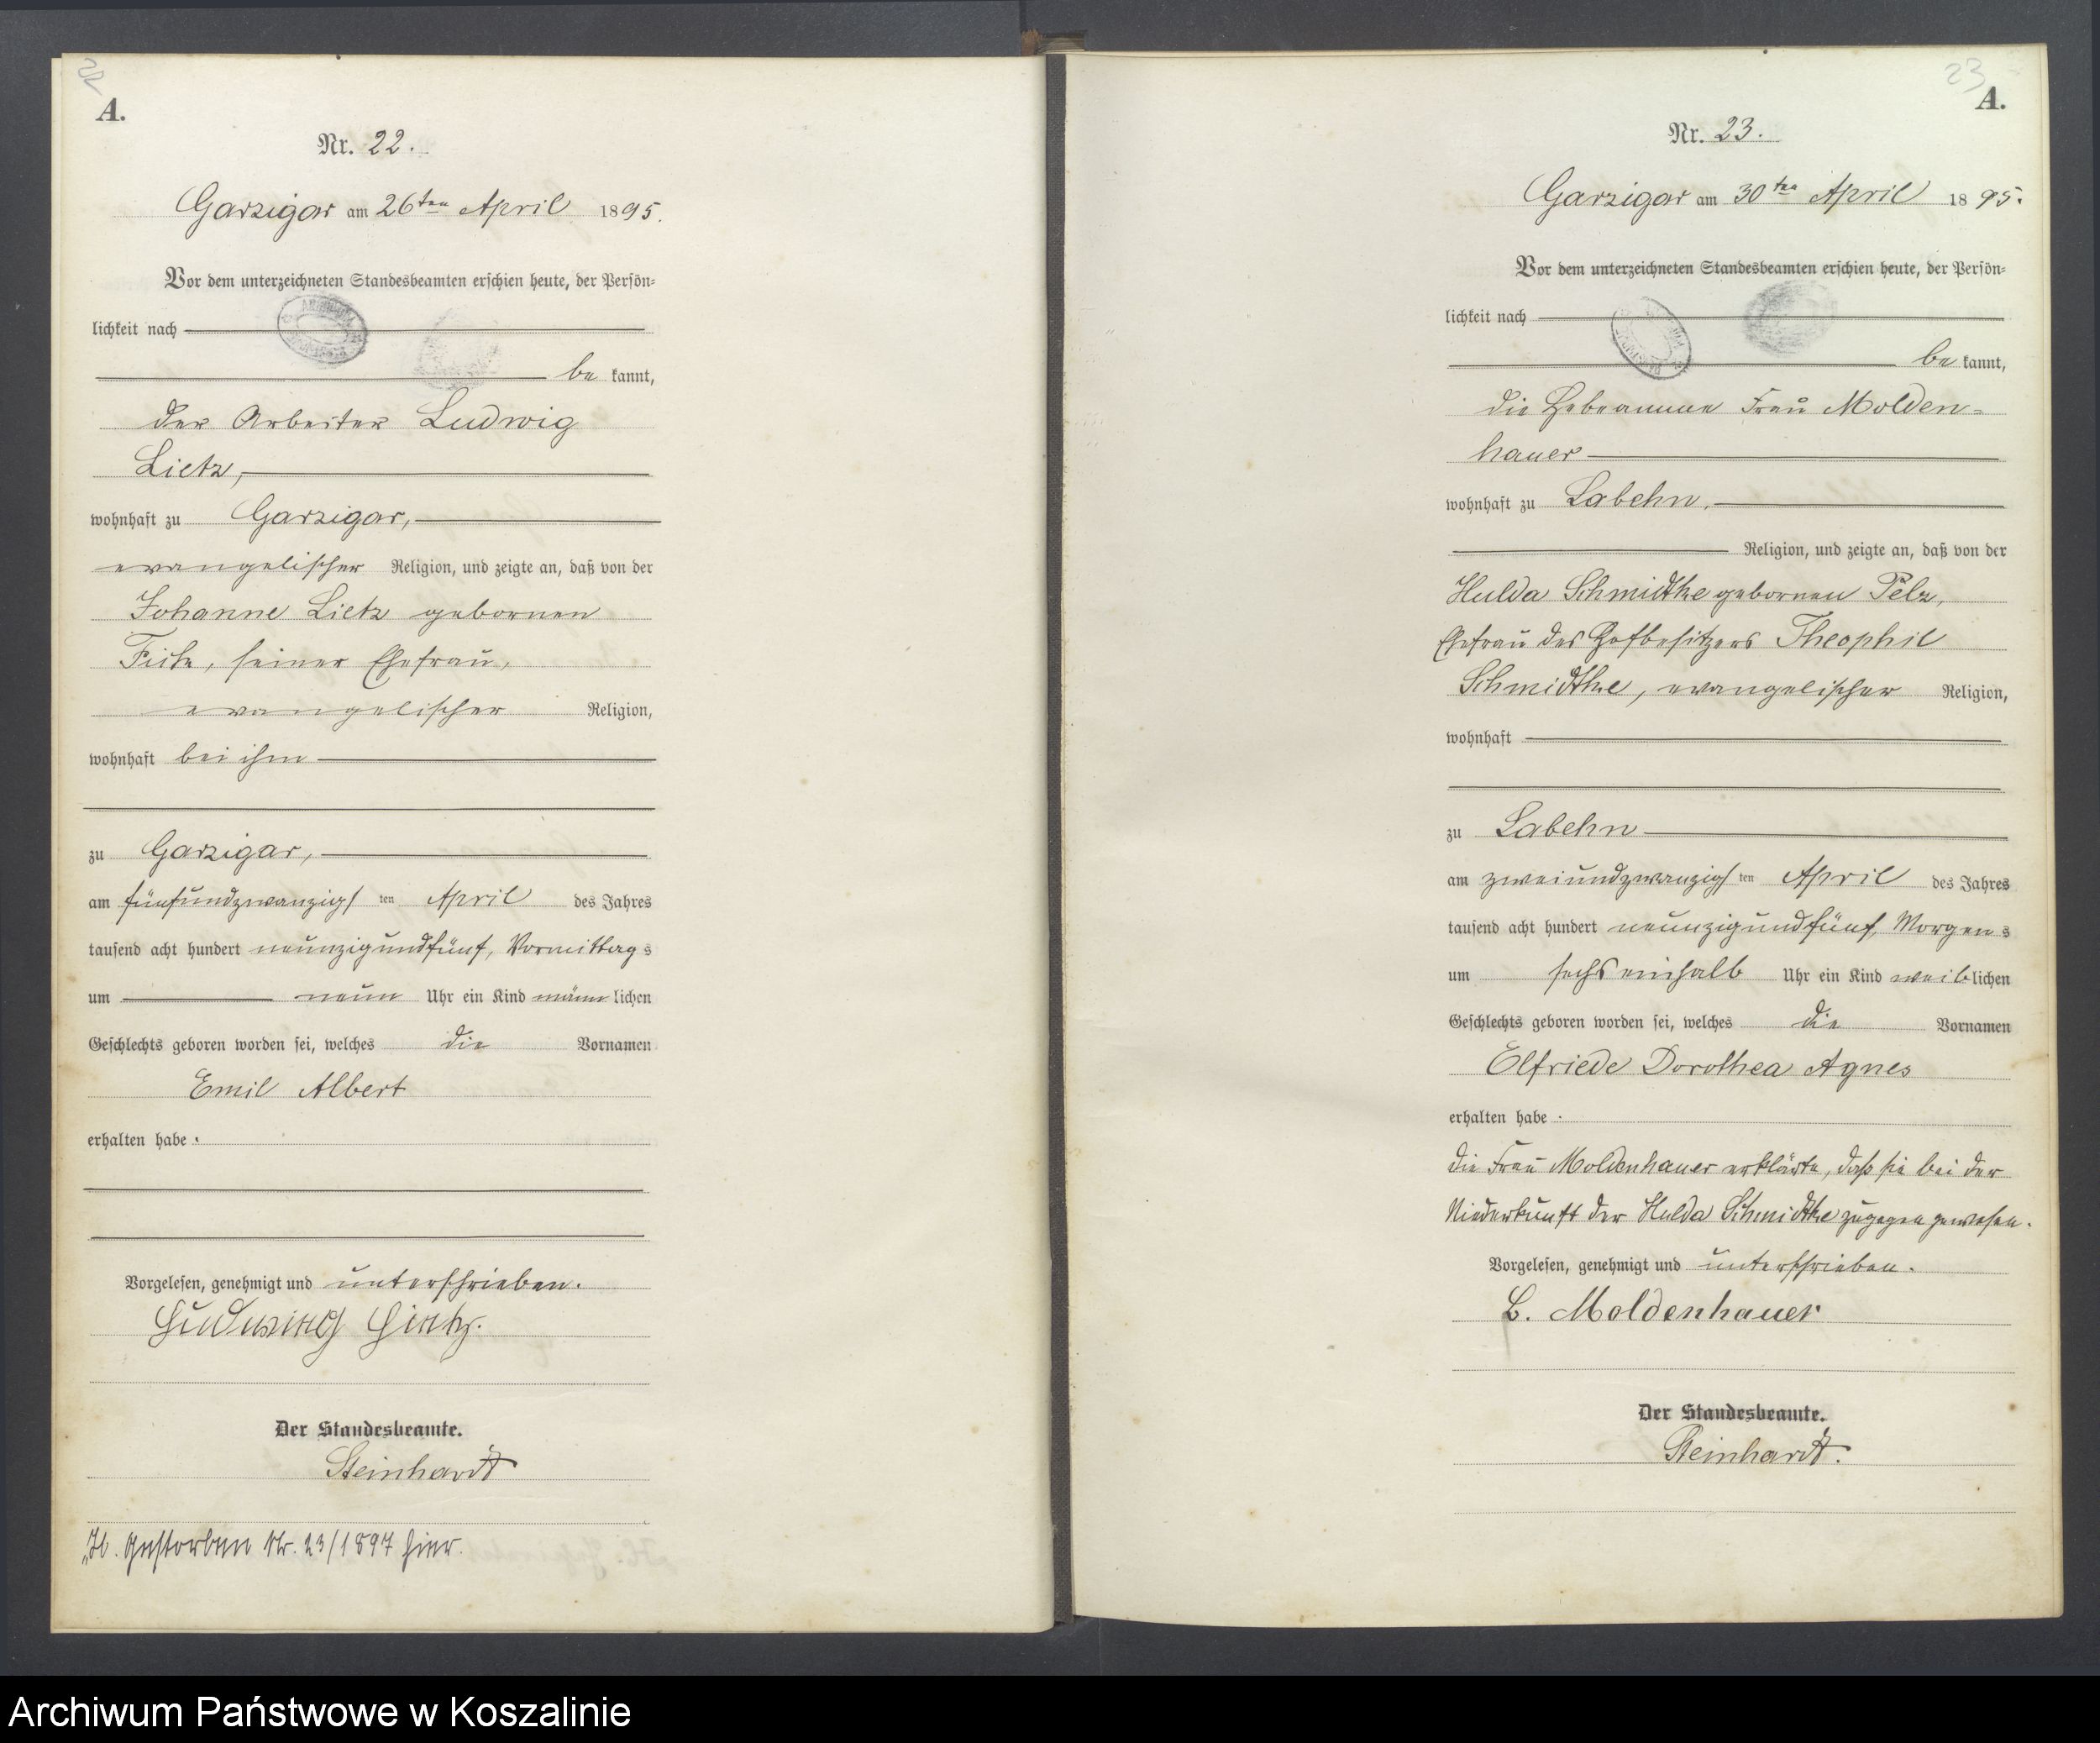 22
A.
Nr. 22.
Garzigar am 26ten April 1895.
Vor dem unterzeichneten Standesbeamten erschien heute, der Persön-
lichkeit nach
be kannt,
der Arbeiter Ludwig
Lietz,
wohnhaft zu Garzigar,
evangelischer Religion, und zeigte an, daß von der
Johanne Lietz gebornen
seiner Ehefrau,
evangelischer Religion,
wohnhaft bei ihm
zu Garzigar,
am fünfundzwanzigsten April des Jahres
tausend acht hundert neunzigundfünf, Vormittags
um neun Uhr ein Kind männlichen
Geschlechts geboren worden sei, welches die Vornamen
Emil Albert
erhalten habe.
Vorgelesen, genehmigt und unterschrieben.
Ludwig Lietz.
Der Standesbeamte.
Steinhardt
gestorben Nr. 23/1897 hier.
23
A.
Nr. 23.
Garzigar am 30ten April 1895.
Vor dem unterzeichneten Standesbeamten erschien heute, der Persön-
lichkeit nach
be kannt,
die Hebeamme Frau Molden-
hauer
wohnhaft zu Labehn,
Religion, und zeigte an, daß von der
Hulda Schmidtke gebornen Pelz,
Ehefrau des Hofbesitzers Theophil
Schmidtke, evangelischer Religion,
wohnhaft
zu Labehn
am zweiundzwanzigsten April des Jahres
tausend acht hundert neunzigundfünf, Morgens
um sechseinhalb Uhr ein Kind weiblichen
Geschlechts geboren worden sei, welches die Vornamen
Elfriede Dorothea Agnes
erhalten habe.
die Frau Moldenhauer erklärte, daß sie bei der
Niederkunft der Hulda Schmidtke zugegen gewesen.
Vorgelesen, genehmigt und unterschrieben.
B. Moldenhauer
Der Standesbeamte.
Steinhardt.
Archiwum Państwowe w Koszalinie